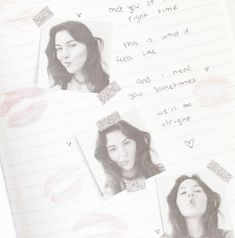 met you at the
right time
this is what it
feels like
and i need
you sometimes
we'll be
alright